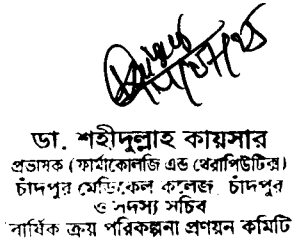 ডা. শহীদুল্লাহ কায়সার
প্রভাষক (ফার্মাকোলজি এন্ড থেরাপিউটিক্স)
চাঁদপুর মেডিকেল কলেজ, চাঁদপুর
ও সদস্য সচিব
বার্ষিক ক্রয় পরিকল্পনা প্রণয়ন কমিটি